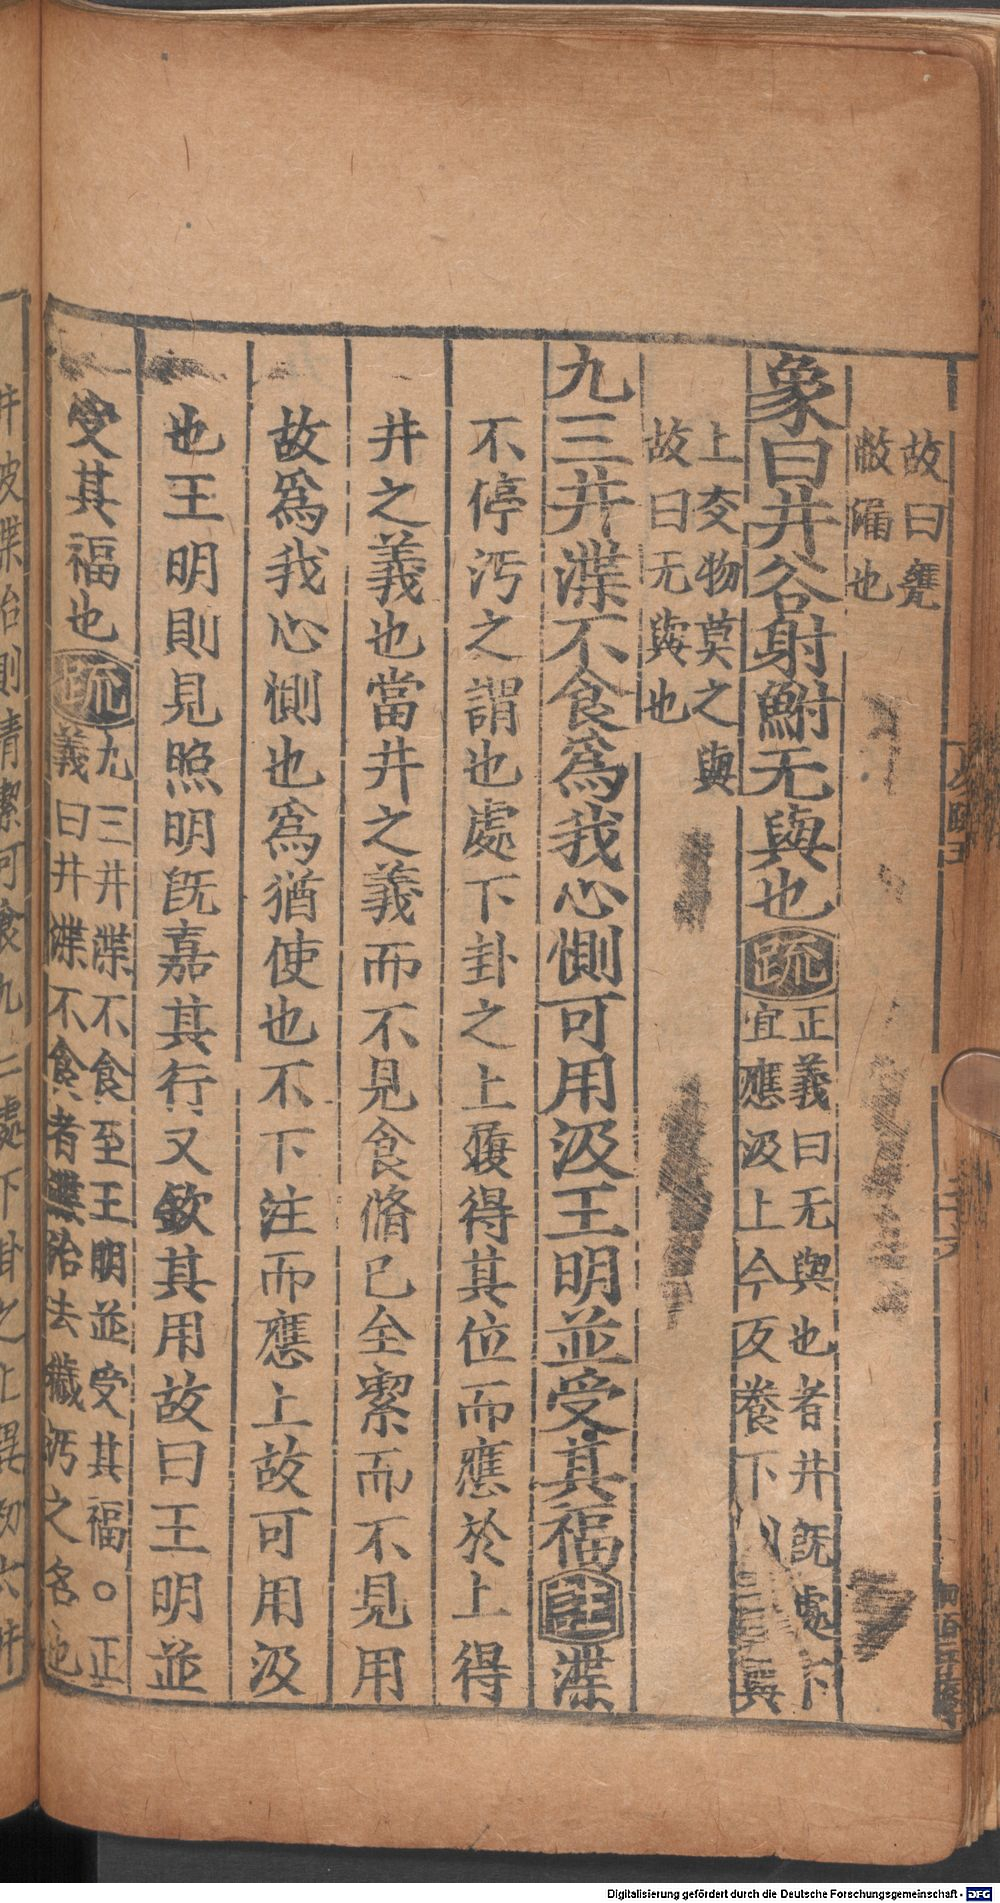 故曰甕
敝漏也
象曰井谷射鮒无與也疏正義曰无與也者井旣處下
宜應汲上今反養下
上交物莫之與
故曰无與也
九三井渫不食為我心惻可用汲王明並受其福註渫
不停汚之謂也處下卦之上履得其位而應於上得
井之義也當井之義而不見食脩己全潔而不見用
故爲我心惻也爲猶使也不下注而應上故可用汲
也王明則見照明旣嘉其行又欽其用故曰王明並
受其福也疏九三井渫不食至王明並受其福○正
義曰井渫不食者渫治去穢汚之名也
井被渫治則清潔可食九三處下卦之上異初六井
Digitalisierung gefördert durch die Deutsche Forschungsgemeinschaft - DFG